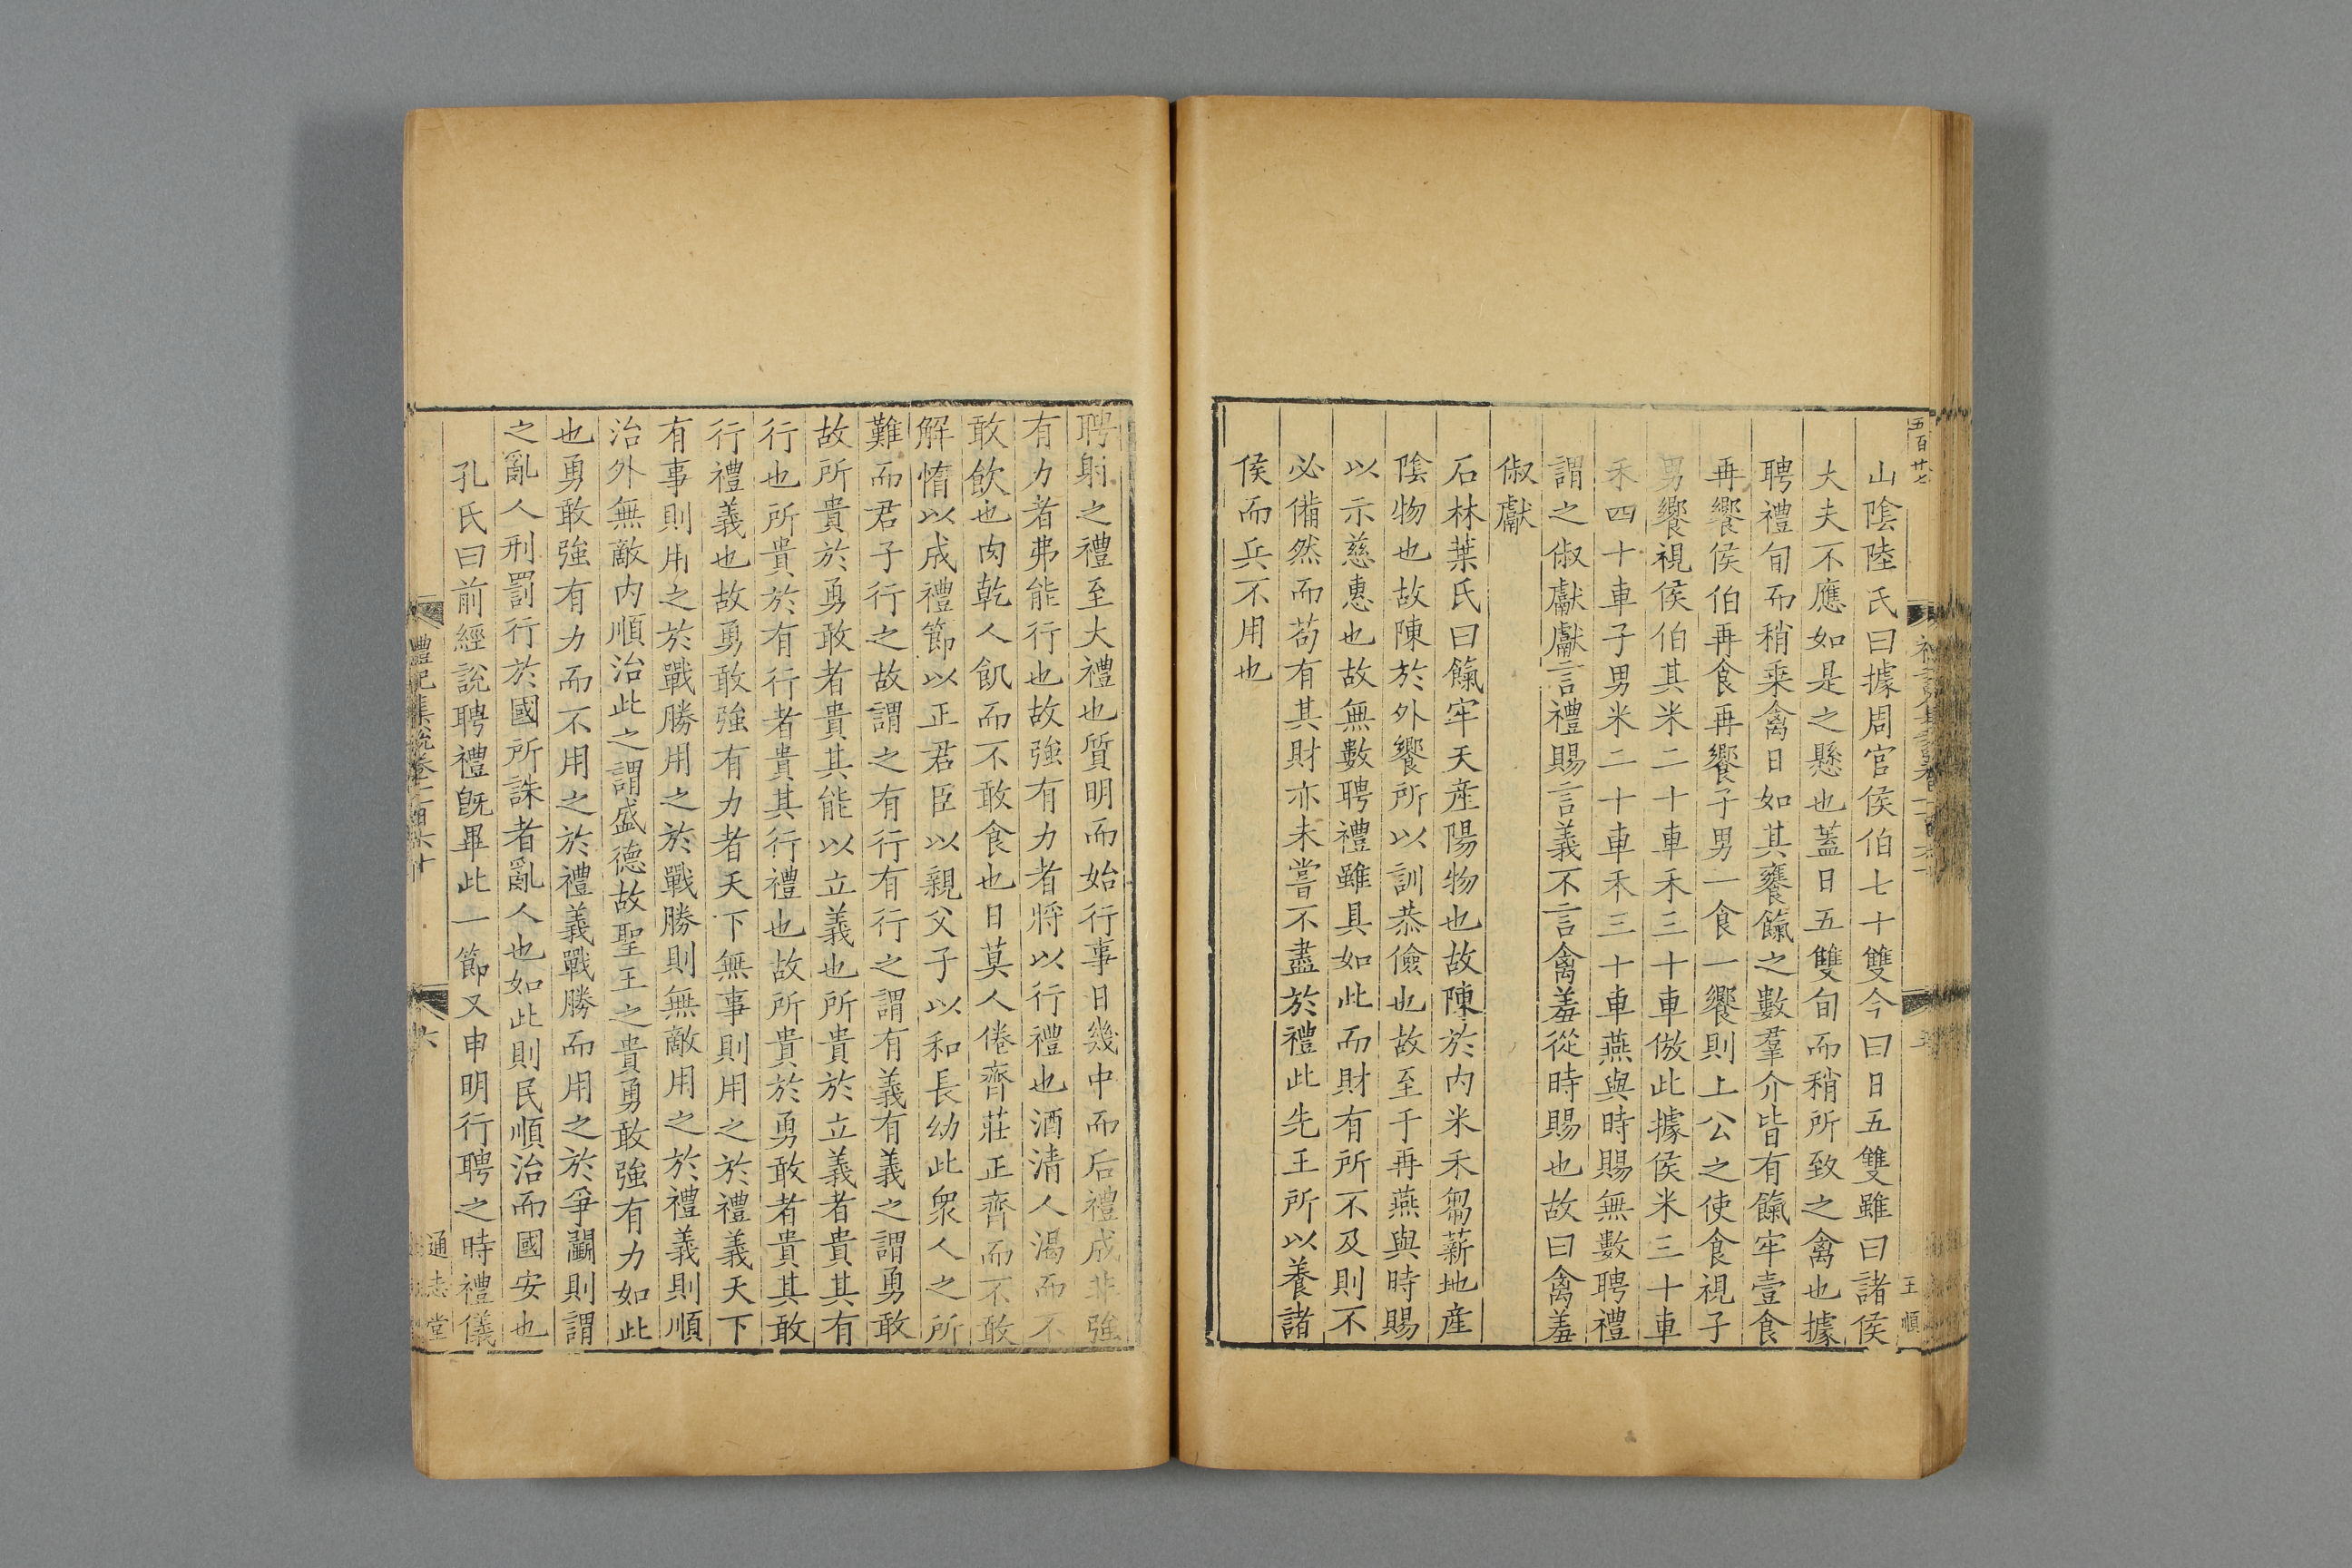 五百廿七
王順
山陰陸氏曰據周官侯伯七十雙今曰日五雙雖曰諸侯
大夫不應如是之懸也蓋日五雙旬而稍所致之禽也據
聘禮旬而稍乗禽日如其饔餼之數羣介皆有餼牢壹食
再饗侯伯再食再饗子男一食一饗則上公之使食視子
男饗視侯伯其米二十車禾三十車倣此據侯米三十車
禾四十車子男米二十車禾三十車燕與時賜無數聘禮
謂之俶獻獻言禮賜言義不言禽羞從時賜也故曰禽羞
俶獻
石林葉氏曰餼牢天産陽物也故陳於内米禾芻薪地産
陰物也故陳於外饗所以訓恭儉也故至于再燕與時賜
以示慈惠也故無數聘禮雖具如此而財有所不及則不
必備然而苟有其財亦未嘗不盡於禮此先王所以養諸
侯而兵不用也
聘射之禮至大禮也質明而始行事日幾中而后禮成非強
有力者弗能行也故強有力者將以行禮也酒清人渴而不
敢飲也肉乾人飢而不敢食也日莫人倦齊莊正齊而不敢
解惰以成禮節以正君臣以親父子以和長幼此衆人之所
難而君子行之故謂之有行有行之謂有義有義之謂勇敢
故所貴於勇敢者貴其能以立義也所貴於立義者貴其有
行也所貴於有行者貴其行禮也故所貴於勇敢者貴其敢
行禮義也故勇敢強有力者天下無事則用之於禮義天下
有事則用之於戰勝用之於戰勝則無敵用之於禮義則順
治外無敵内順治此之謂盛德故聖王之貴勇敢強有力如此
也勇敢強有力而不用之於禮義戰勝而用之於爭鬬則謂
之亂人刑罰行於國所誅者亂人也如此則民順治而國安也
孔氏曰前經說聘禮旣畢此一節又申明行聘之時禮儀
禮記集說卷一百六十
六
通志堂